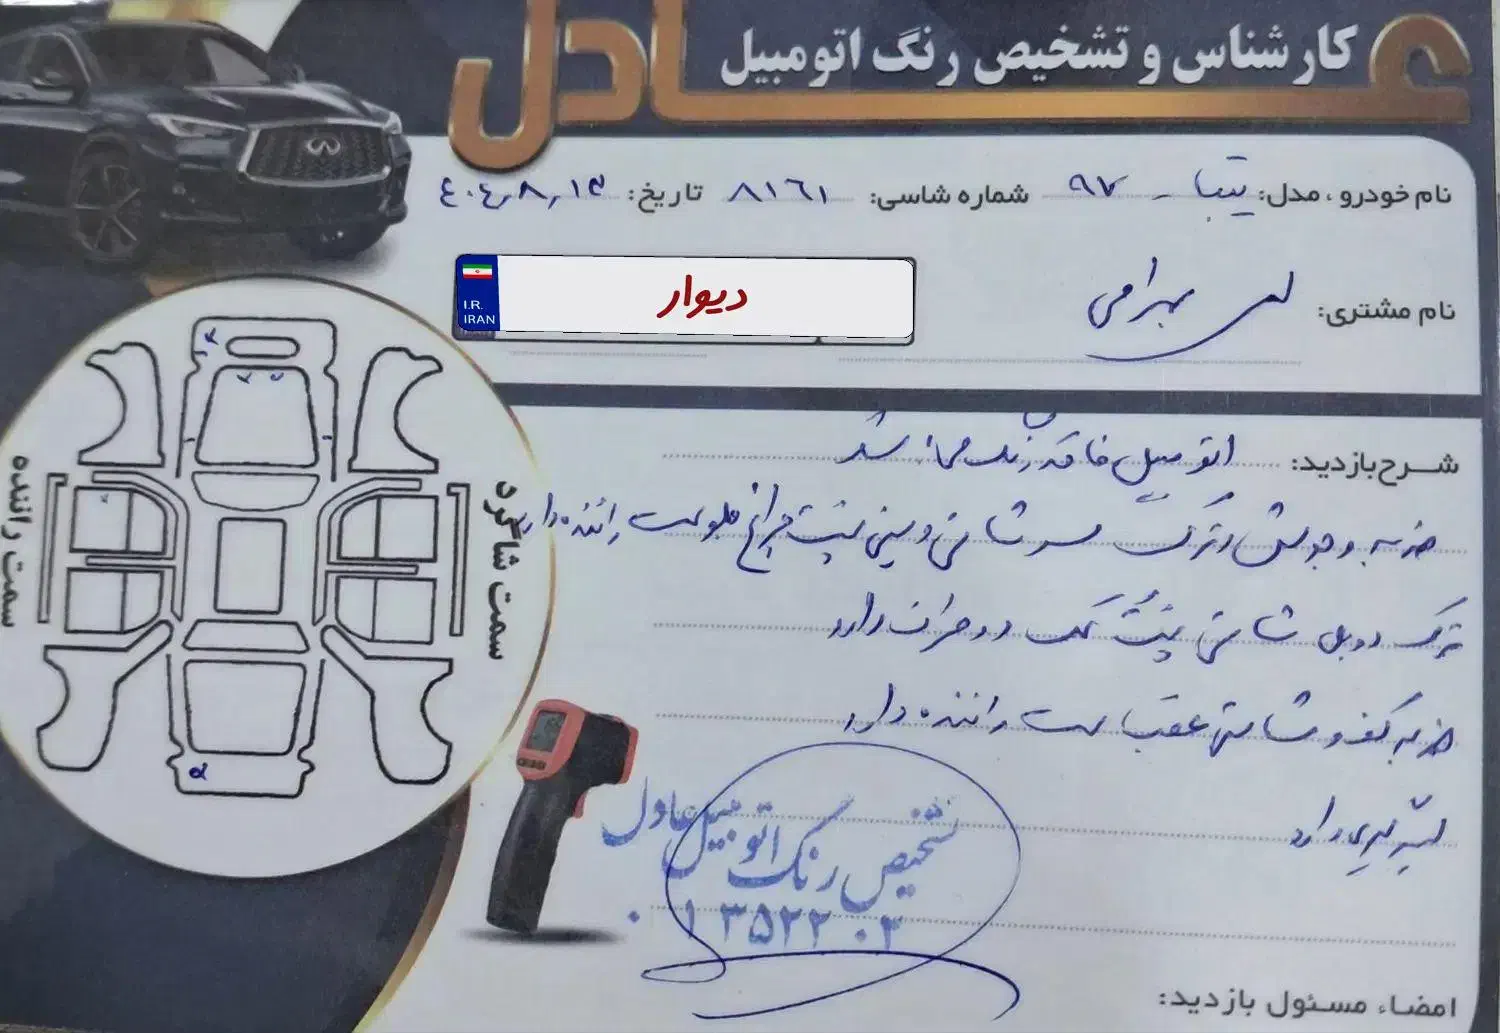 عادل
کارشناس و تشخیص رنگ اتومبیل
نام خودرو ، مدل: تیبا - ۹۷ شماره شاسی: ۸۱۶۱ تاریخ: ٤٠٤,٨,١٣
I.R.
IRAN
دیوار
نام مشتری: بهرامی
شرح بازدید: اتومبیل فاقد رنگ می باشد
ضربه و جوش و ترک سرشاسی و سینی پشت چراغ جلو سمت راننده دارد
ترک دوبل شاسی پشت کمک دو طرف دارد
ضربه کف و شاسی عقب سمت راننده دارد
لیسه گیری دارد
سمت راننده
سمت شاگرد
تشخیص رنگ اتومبیل عادل
۰۱۳۵۲۲۰۳
امضاء مسئول بازدید: